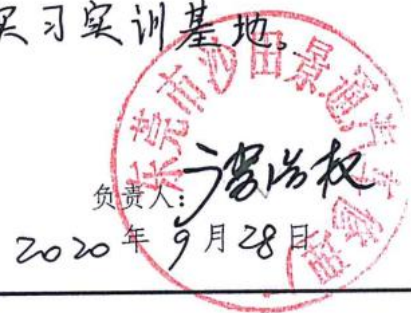 实习实训基地。
东莞市沙田景通汽车修理
负责人:
2020年9月28日